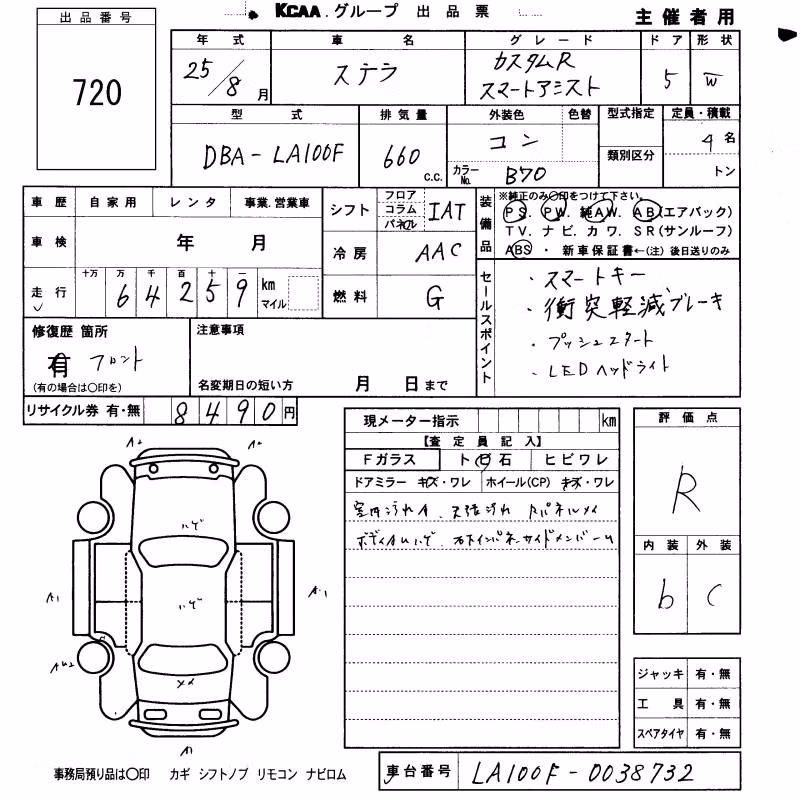 KCAA.グループ 出品票
主催者用
出品番号
720
年式 車名 グレード ドア 形状
25/8月 ステラ カスタムR スマートアシスト 5 W
型式 排気量 外装色 色替 型式指定 定員・積載
DBA-LA100F 660 C.C. コン 類別区分 4名
カラーNo. B70 トン
車歴 自家用 レンタ 事業.営業車
シフト フロア コラム パネル IAT
装備品 ※純正のみ○印をつけて下さい。
PS. PW. 純AW. AB(エアバック)
TV. ナビ. カワ. SR(サンルーフ)
ABS ・ 新車保証書←(注) 後日送りのみ
車検 年 月
冷房 AAC
走行 十万 万 千 百 十 一 km マイル
64259
燃料 G
セールスポイント
・スマートキー
・衝突軽減ブレーキ
・プッシュスタート
・LEDヘッドライト
修復歴 箇所
有 フロント
(有の場合は○印を)
注意事項
名変期日の短い方 月 日まで
リサイクル券 有・無 8490円
現メーター指示 km
【査定員記入】
Fガラス ト日石 ヒビワレ
ドアミラー キズ・ワレ ホイール(CP) キズ・ワレ
室内汚れA. 天張汚れ
評価点
R
内装 外装
b C
A2 A2
ハゲ
A1 ハゲ A1
AU2
メメ
A1
ジャッキ 有・無
工具 有・無
スペアタイヤ 有・無
事務局預り品は○印 カギ シフトノブ リモコン ナビロム
車台番号 LA100F-0038732